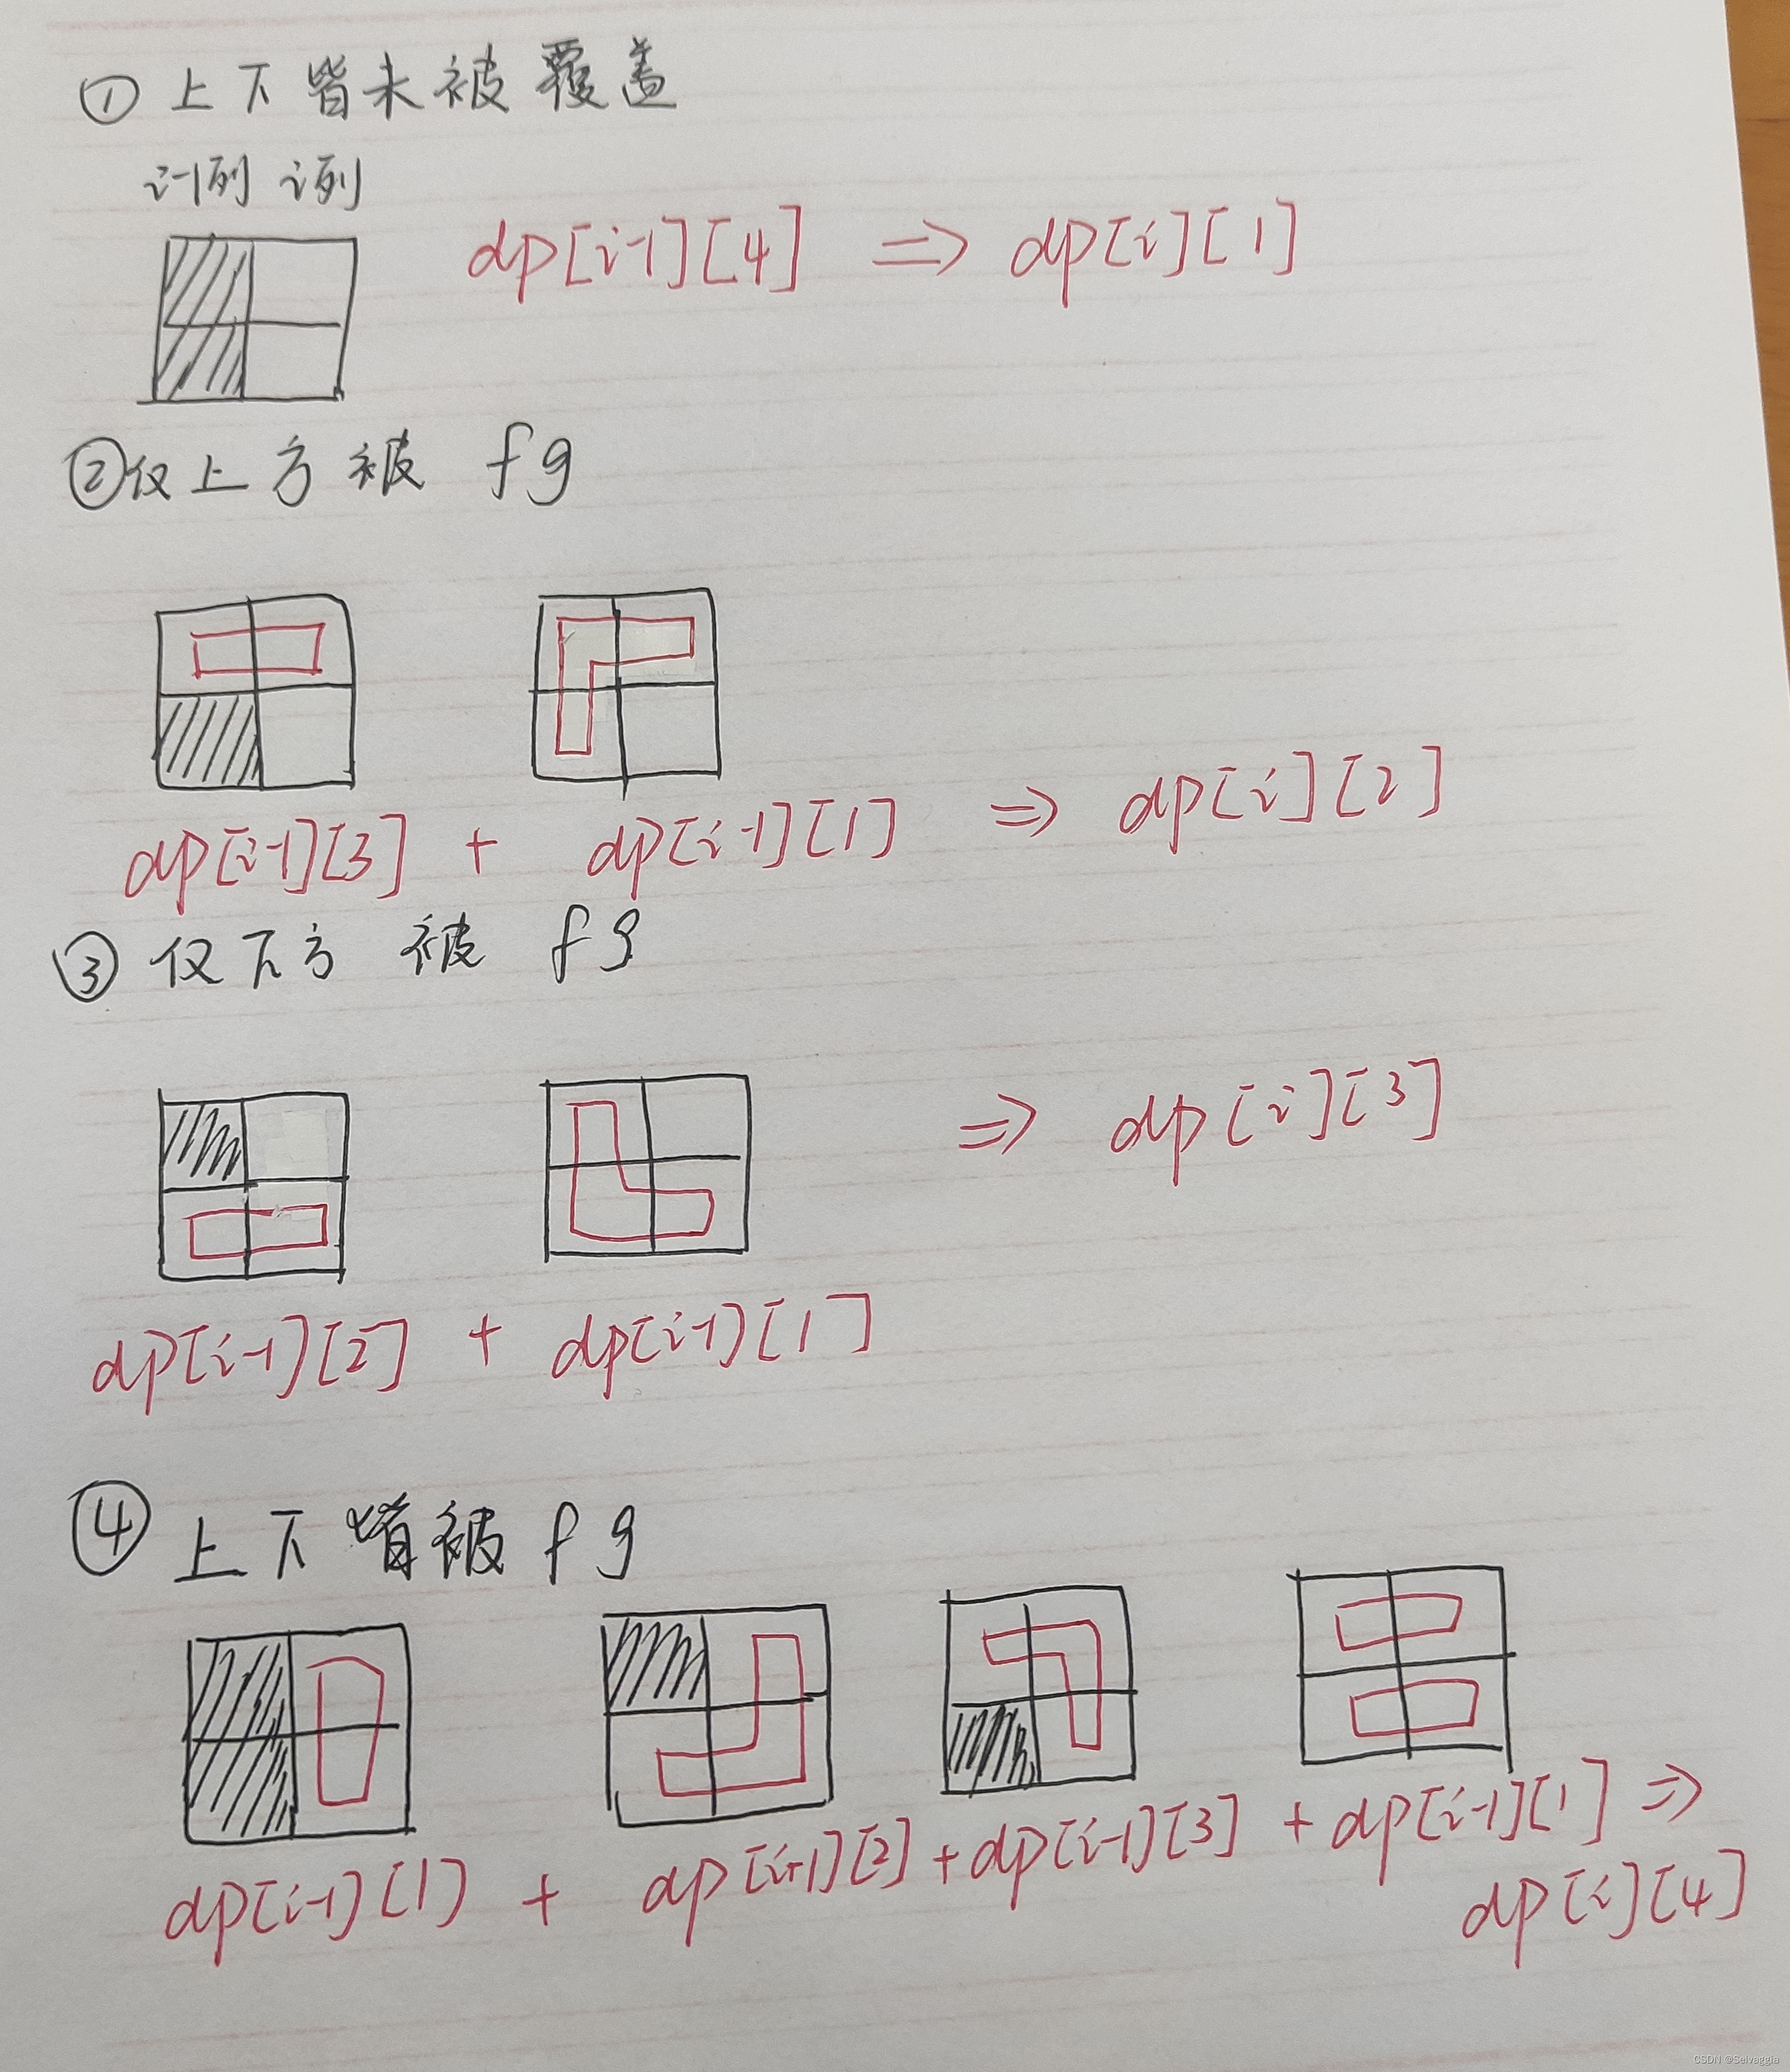 ① 上下皆未被覆盖
i-1列 i列
dp[i-1][4] => dp[i][1]
②仅上方被 fg
dp[i-1][3] + dp[i-1][1] => dp[i][2]
③ 仅下方被 fg
=> dp[i][3]
dp[i-1][2] + dp[i-1][1]
④ 上下皆被fg
dp[i-1][1] + dp[i-1][2] + dp[i-1][3] + dp[i-1][1] =>
dp[i][4]
CSDN @Selvaggia